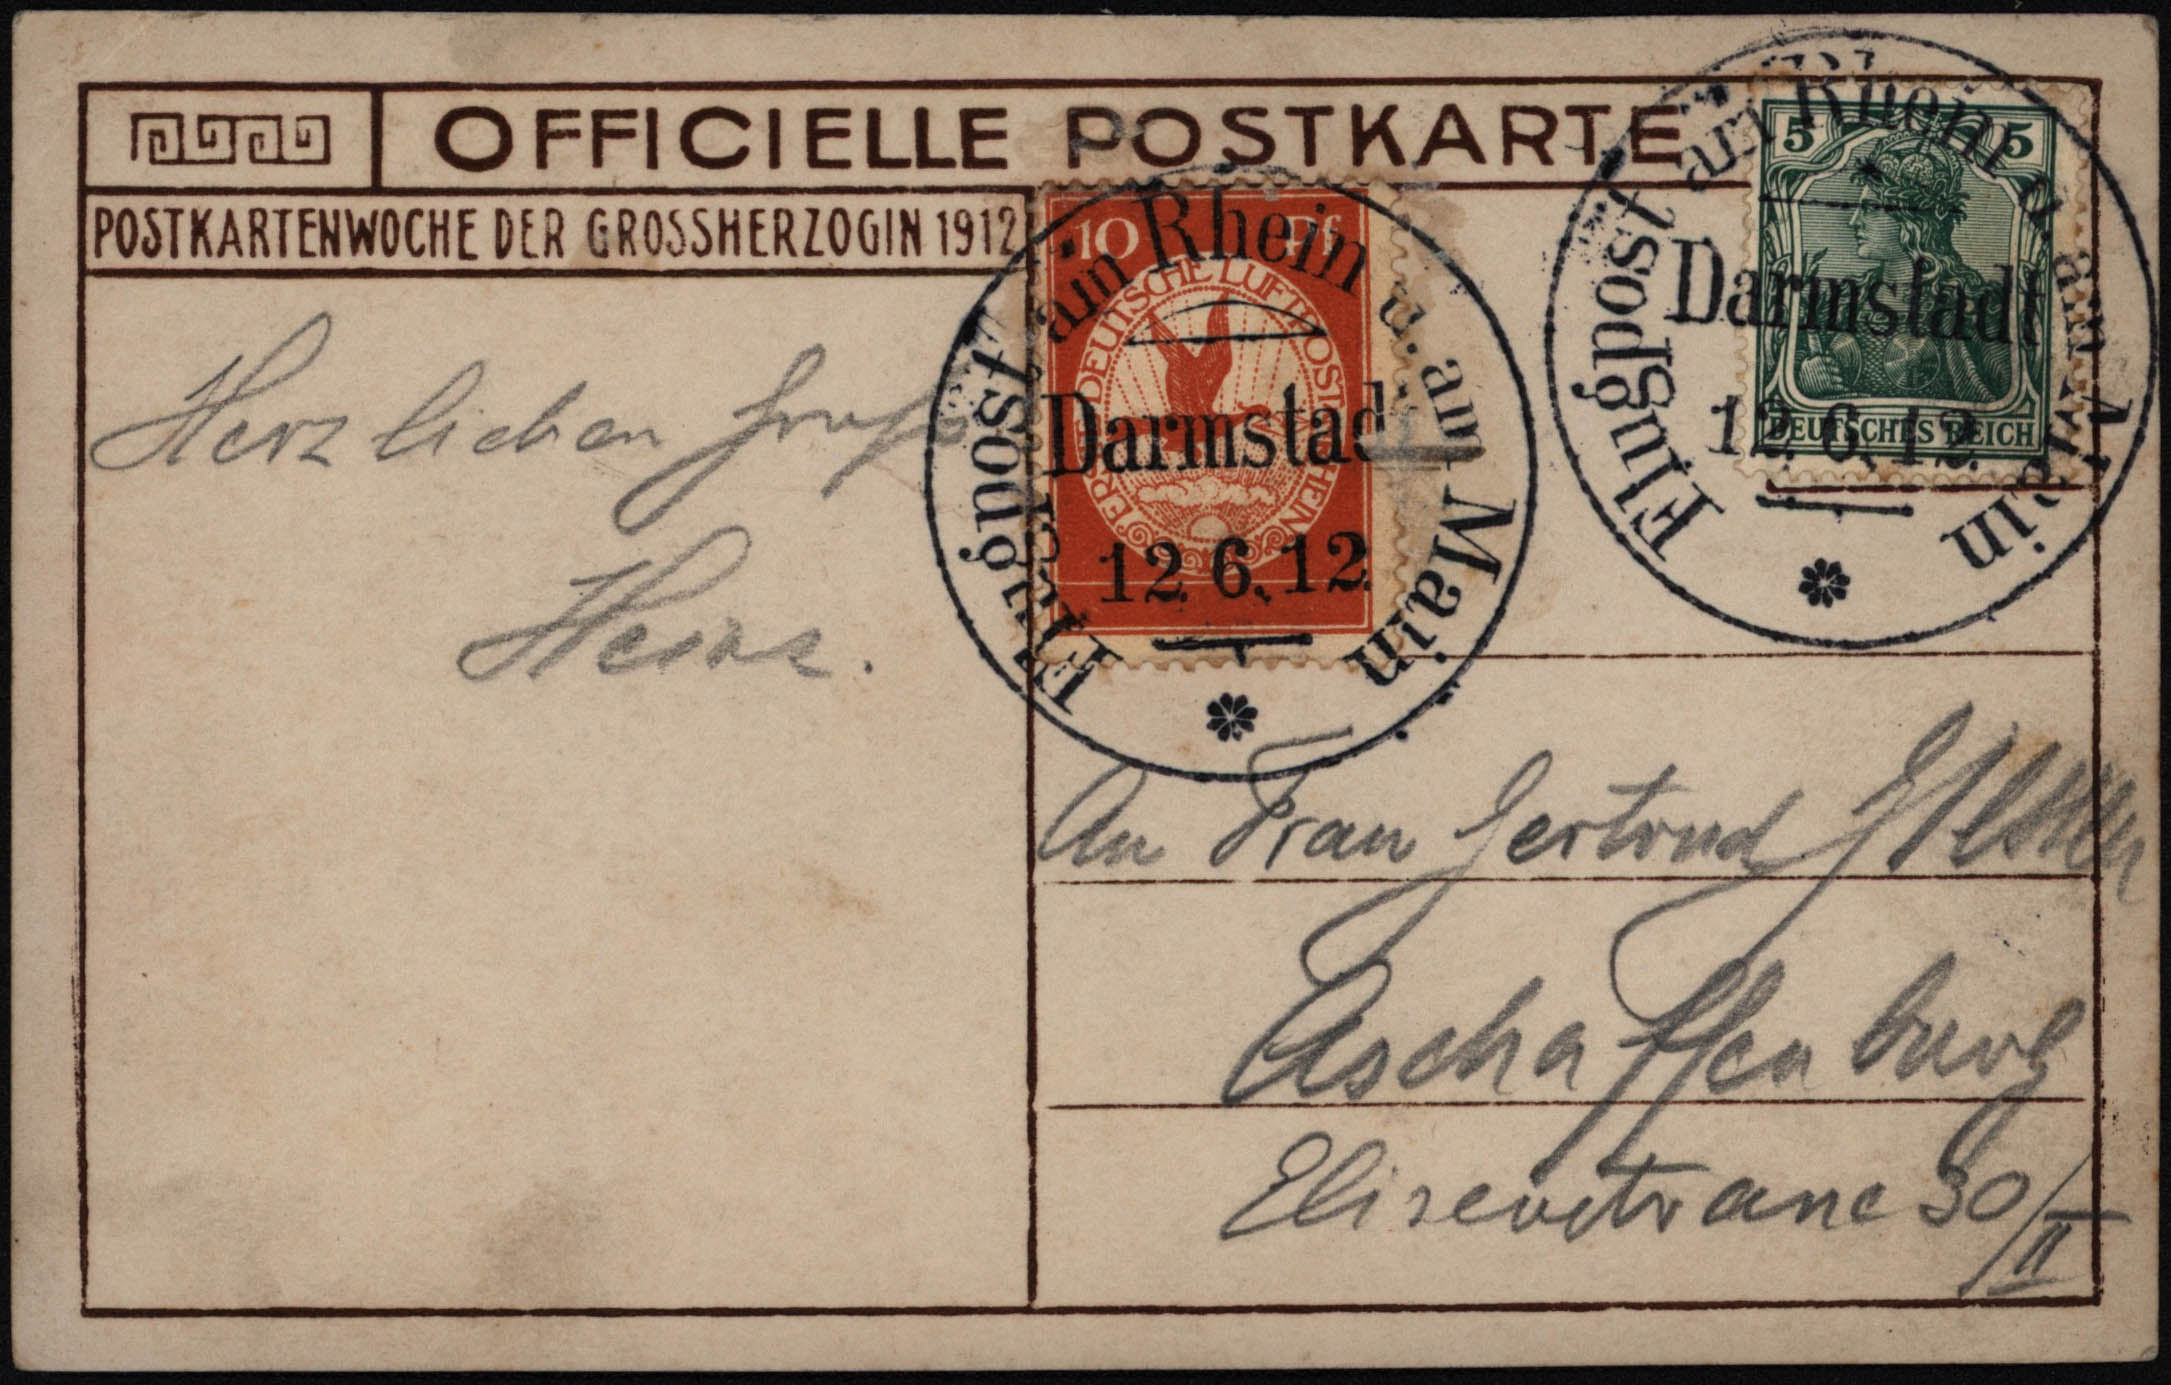 OFFICIELLE POSTKARTE
POSTKARTENWOCHE DER GROSSHERZOGIN 1912
10 Pf
ERSTE DEUTSCHE LUFTPOST RHEIN
Flugpost am Rhein u. am Main
Darmstadt
12.6.12.
5 5
DEUTSCHES REICH
Flugpost am Rhein u. am Main
Darmstadt
12.6.12.
Herzlichen Gruß
Heinz.
An Frau Gertrud
Aschaffenburg
Elisenstrasse 30/II